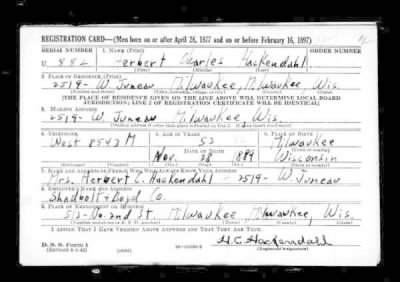 REGISTRATION CARD—(Men born on or after April 28, 1877 and on or before February 16, 1897)
SERIAL NUMBER 1. NAME (Print) ORDER NUMBER
U 882 Herbert Charles Hackendahl
(First) (Middle) (Last)
2. PLACE OF RESIDENCE (Print)
2519- W. Juneau Milwaukee, Milwaukee Wis.
(Number and street) (Town, township, village, or city) (County) (State)
[THE PLACE OF RESIDENCE GIVEN ON THE LINE ABOVE WILL DETERMINE LOCAL BOARD
JURISDICTION; LINE 2 OF REGISTRATION CERTIFICATE WILL BE IDENTICAL]
3. MAILING ADDRESS
2519- W. Juneau Milwaukee, Wis.
4. TELEPHONE 5. AGE IN YEARS 6. PLACE OF BIRTH
West 8543 M 53 Milwaukee
DATE OF BIRTH
Nov. 28 1889 Wisconsin
(Exchange) (Number) (Mo.) (Day) (Yr.) (State or country)
7. NAME AND ADDRESS OF PERSON WHO WILL ALWAYS KNOW YOUR ADDRESS
Mrs. Herbert C. Hackendahl - 2519- W. Juneau
8. EMPLOYER'S NAME AND ADDRESS
Shadbolt & Boyd Co.
9. PLACE OF EMPLOYMENT OR BUSINESS
Milwaukee Milwaukee, Wis.
I AFFIRM THAT I HAVE VERIFIED ABOVE ANSWERS AND THAT THEY ARE TRUE.
H.C. Hackendahl
D. S. S. Form 1
(Revised 4-1-42) (over) (Registrant's signature)